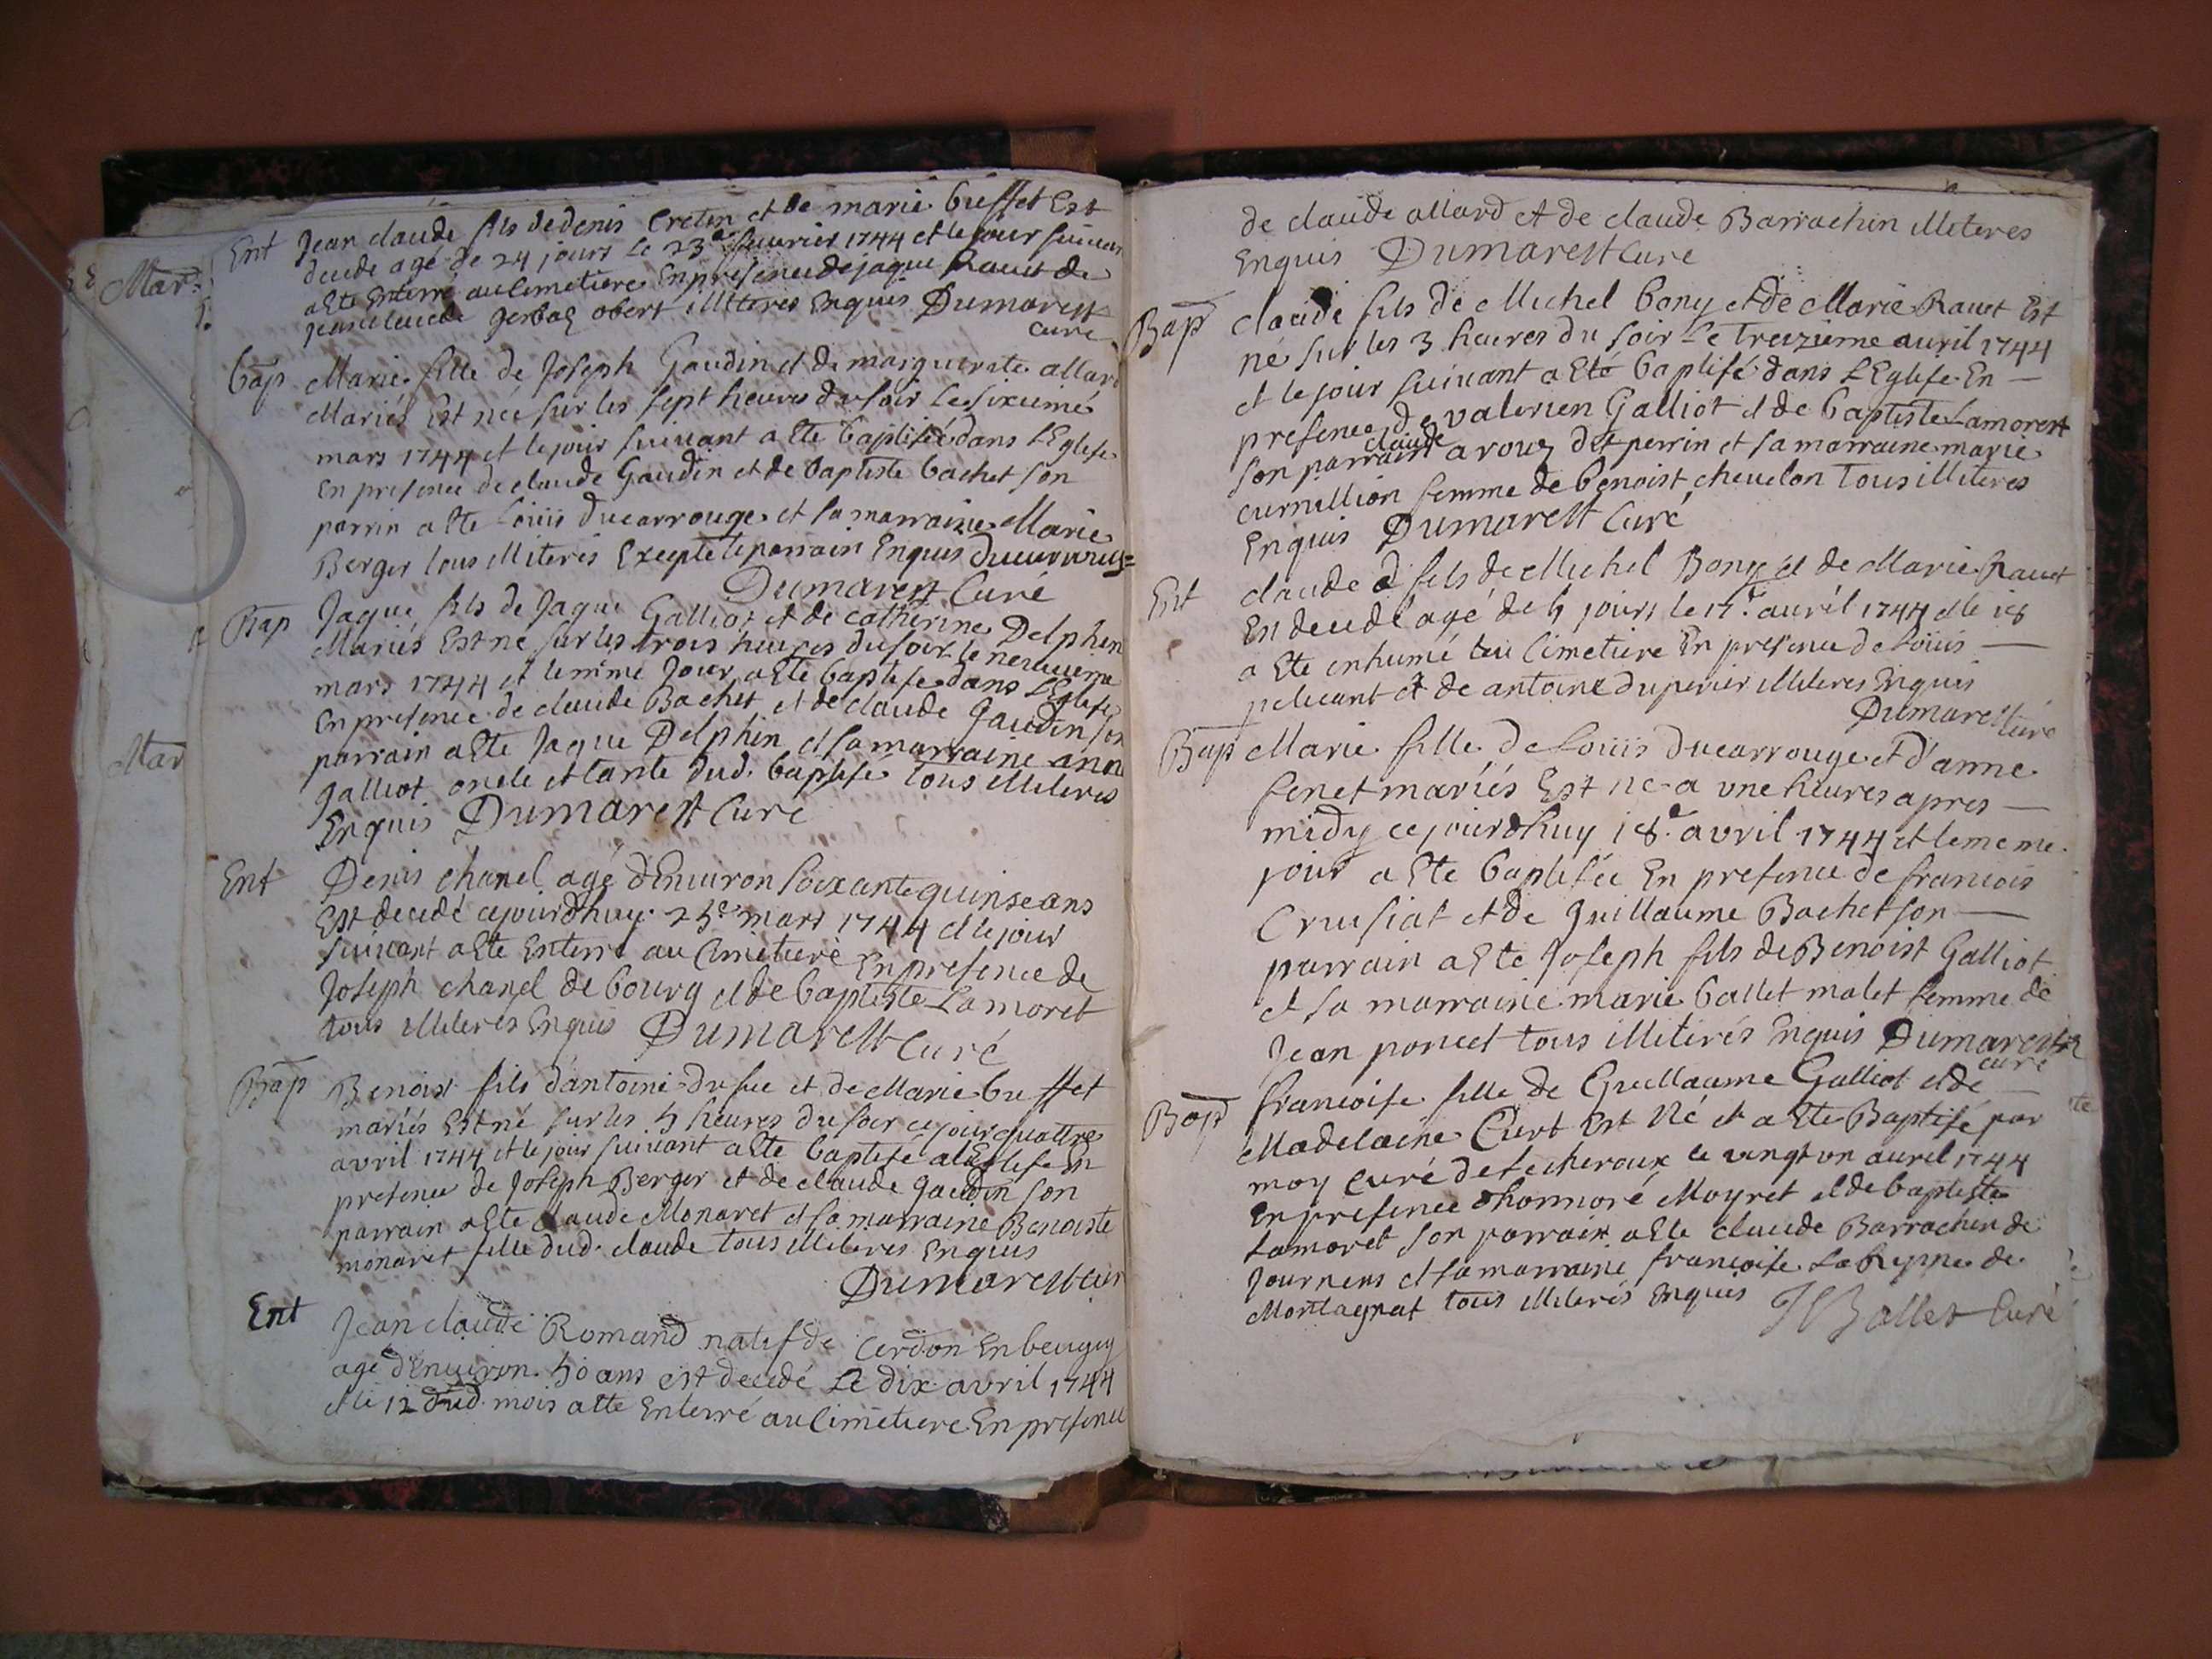 Ent Jean claude fils de denis Cretin et de marie buffet Est
decede agé de 24 jours le 23e feuvrier 1744 et le jour suivan
a Ete Enterré au Cimetiere En presence de jaque Ravet de
jean claude gerbaz obert illiteres Enquis Dumarest
curé
bap Marie fille de Joseph Gaudin et de marguerite allard
Mariés Est née sur les sept heures du soir le sixieme
mars 1744 et le jour suivant a Ete baptisée dans L'Eglise
En presence de claude Gaudin et de baptiste bachet son
parrin a Ete Louis ducarrouge et sa marraine Marie
Berger tous illiterés Excepté le parrain Enquis ducarrouge
Dumarest Curé
Bap Jaque fils de Jaque Galliot et de catherine Delphin
Mariés Est né sur les trois heures du soir le neuvieme
mars 1744 et le mème Jour a Eté baptisé dans L'Eglise
En presence de claude Bachet et de claude Gaudin son
parrain a Ete Jaque Delphin et sa marraine anne
galliot oncle et tante dud. baptisé tous illiteres
Enquis Dumarest Curé
Ent Denis chanel agé d'Environ soixante quinse ans
Est decedé cejourdhuy 25e mars 1744 et le jour
suivant a Ete Enterré au Cimetiere En presence de
Joseph chanel de bourg et de baptiste Lamoret
tous illiteres Enquis Dumarest Curé
Bap Benoist fils d'antoine dufuc et de Marie buffet
mariés Est né sur les 5 heures du soir ce jour quattre
avril 1744 et le jour suivant a Ete baptisé a L'Eglise En
presence de Joseph Berger et de claude gaudin son
parrain a Ete claude Monaret et sa marraine Benoiste
monaret fille dud. claude tous illiteres Enquis
Dumarest cur
Ent Jean claude Romand natif de Cerdon En beugey
agé d'Environ 50 ans est decedé Le dix avril 1744
et le 12 dud. mois a Ete Enterré au Cimetiere En presence
Mar
Mar
de claude allard et de claude Barrachin illiteres
Enquis Dumarest Curé
Bap claude fils de Michel bony et de Marie Ravet Est
né sur les 3 heures du soir Le treizieme avril 1744
et le jour suivant a Eté baptisé dans L'Eglise En
presence de valerien Galliot et de baptiste Lamorest
son parrain claude arouz dit perrin et sa marraine marie
curnillion femme de benoist chevelon tous illiteres
Enquis Dumarest Curé
Ent claude fils de Michel Bony et de Marie Ravet
Est decedé agé de 5 jours le 17e avril 1744 et le 18
a Ete inhumé au Cimetiere En presence de Louis
pelicant et de antoine duperier illiteres Enquis
Dumarest curé
Bap Marie fille de Louis ducarrouge et d'anne
fenet mariés Est né a une heures apres
midy cejourdhuy 18e avril 1744 et le meme
jour a Ete baptisée En presence de francois
Crusiat et de guillaume Bachet son
parrain a Ete Joseph fils de Benoist Galliot
et sa marraine marie ballet malet femme de
Jean poncet tous illiterés Enquis Dumarest
curé
Bap francoise fille de Guillaume Galliot et de
Madelaine Curt Est Né et a Ete Baptisé par
moy curé de Lecheroux le vingt un avril 1744
En presence d'honnoré Moyret et de baptiste
Lamoret son parrain a Ete claude Barrachin de
Journens et sa marraine francoise Labeynne de
Montagnat tous illiterés Enquis Ballet Curé